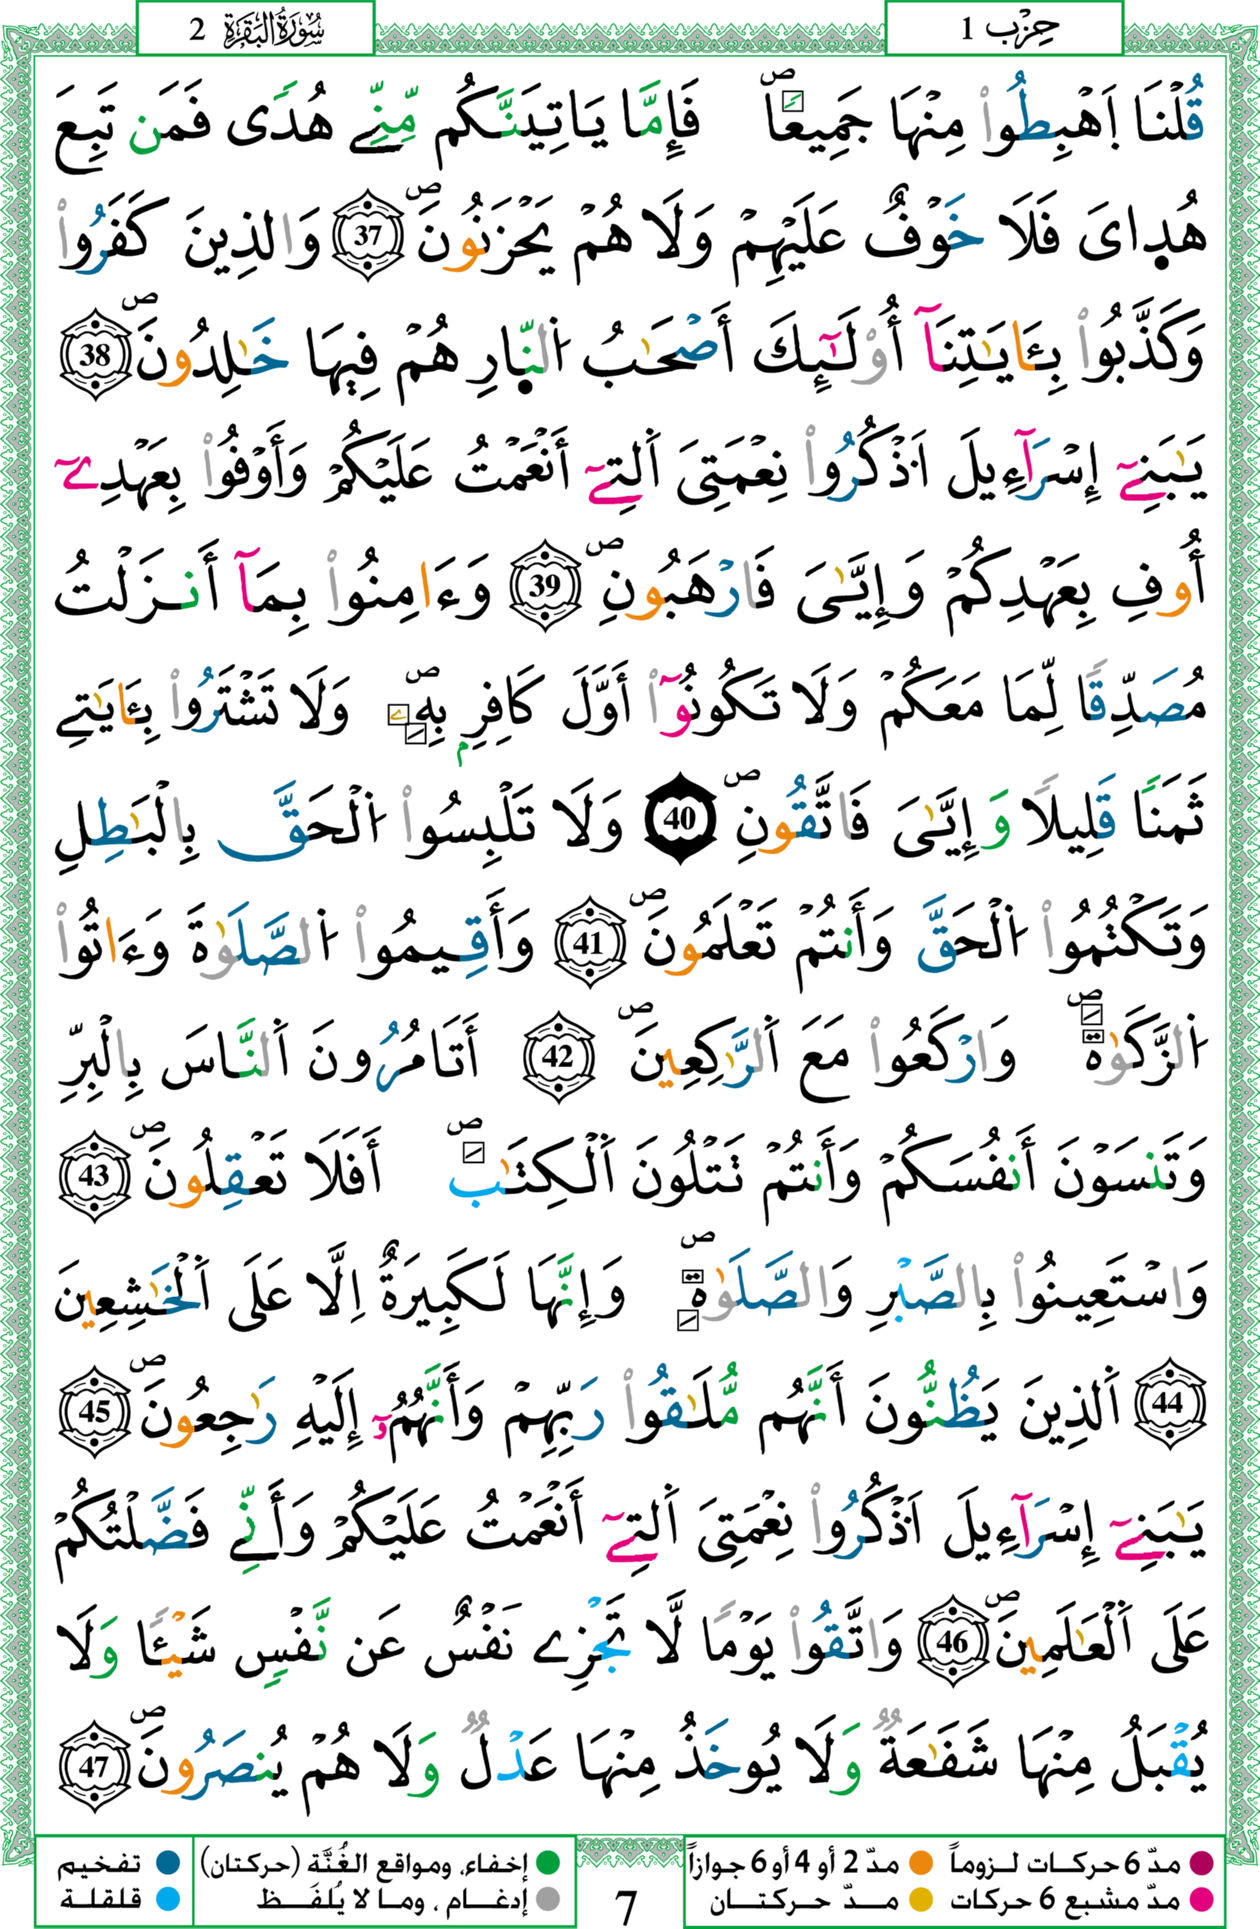 حِزْب 1
سُورَةُ البَقَرَةِ 2
قُلْنَا اَهْبِطُواْ مِنْهَا جَمِيعاٗ ۖ فَإِمَّا يَاتِيَنَّكُم مِّنِّے هُدٗى فَمَن تَبِعَ
هُد۪ايَ فَلَا خَوْفٌ عَلَيْهِمْ وَلَا هُمْ يَحْزَنُونَۖ 37 وَالذِينَ كَفَرُواْ
وَكَذَّبُواْ بِـَٔايَٰتِنَآ أُوْلَٰٓئِكَ أَصْحَٰبُ اُ۬لنّ۪ارِ هُمْ فِيهَا خَٰلِدُونَۖ 38
يَٰبَنِےٓ إِسْرَآءِيلَ اَذْكُرُواْ نِعْمَتِيَ اَ۬لتِےٓ أَنْعَمْتُ عَلَيْكُمْ وَأَوْفُواْ بِعَهْدِےٓ
أُوفِ بِعَهْدِكُمْ وَإِيَّٰيَ فَارْهَبُونِۖ 39 وَءَامِنُواْ بِمَآ أَنزَلْتُ
مُصَدِّقاٗ لِّمَا مَعَكُمْ وَلَا تَكُونُوٓاْ أَوَّلَ كَافِرِۢ بِهِۦۖ وَلَا تَشْتَرُواْ بِـَٔايَٰتِے
ثَمَناٗ قَلِيلاٗ وَإِيَّٰيَ فَاتَّقُونِۖ 40 وَلَا تَلْبِسُواْ اُ۬لْحَقَّ بِالْبَٰطِلِ
وَتَكْتُمُواْ اُ۬لْحَقَّ وَأَنتُمْ تَعْلَمُونَۖ 41 وَأَقِيمُواْ اُ۬لصَّلَوٰةَ وَءَاتُواْ
اُ۬لزَّكَوٰةَۖ وَارْكَعُواْ مَعَ اَ۬لرَّٰكِعِينَۖ 42 أَتَامُرُونَ اَ۬لنَّاسَ بِالْبِرِّ
وَتَنسَوْنَ أَنفُسَكُمْ وَأَنتُمْ تَتْلُونَ اَ۬لْكِتَٰبَۖ أَفَلَا تَعْقِلُونَۖ 43
وَاسْتَعِينُواْ بِالصَّبْرِ وَالصَّلَوٰةِۖ وَإِنَّهَا لَكَبِيرَةٌ اِلَّا عَلَى اَ۬لْخَٰشِعِينَ
44 اَ۬لذِينَ يَظُنُّونَ أَنَّهُم مُّلَٰقُواْ رَبِّهِمْ وَأَنَّهُمُۥٓ إِلَيْهِ رَٰجِعُونَۖ 45
يَٰبَنِےٓ إِسْرَآءِيلَ اَذْكُرُواْ نِعْمَتِيَ اَ۬لتِےٓ أَنْعَمْتُ عَلَيْكُمْ وَأَنِّے فَضَّلْتُكُمْ
عَلَى اَ۬لْعَٰلَمِينَۖ 46 وَاتَّقُواْ يَوْماٗ لَّا تَجْزِے نَفْسٌ عَن نَّفْسٖ شَيْـٔاٗ وَلَا
يُقْبَلُ مِنْهَا شَفَٰعَةٞ وَلَا يُوخَذُ مِنْهَا عَدْلٞ وَلَا هُمْ يُنصَرُونَۖ 47
مدّ 6 حركات لـزوماً مدّ 2 أو 4 أو 6 جوازاً
مدّ مشبع 6 حركات مــدّ حــركتــان
7
إخفاء، ومواقع الغُنَّة (حركتان) تفخيم
إدغــام ، ومـا لا يُلفَــظ قلقلـة